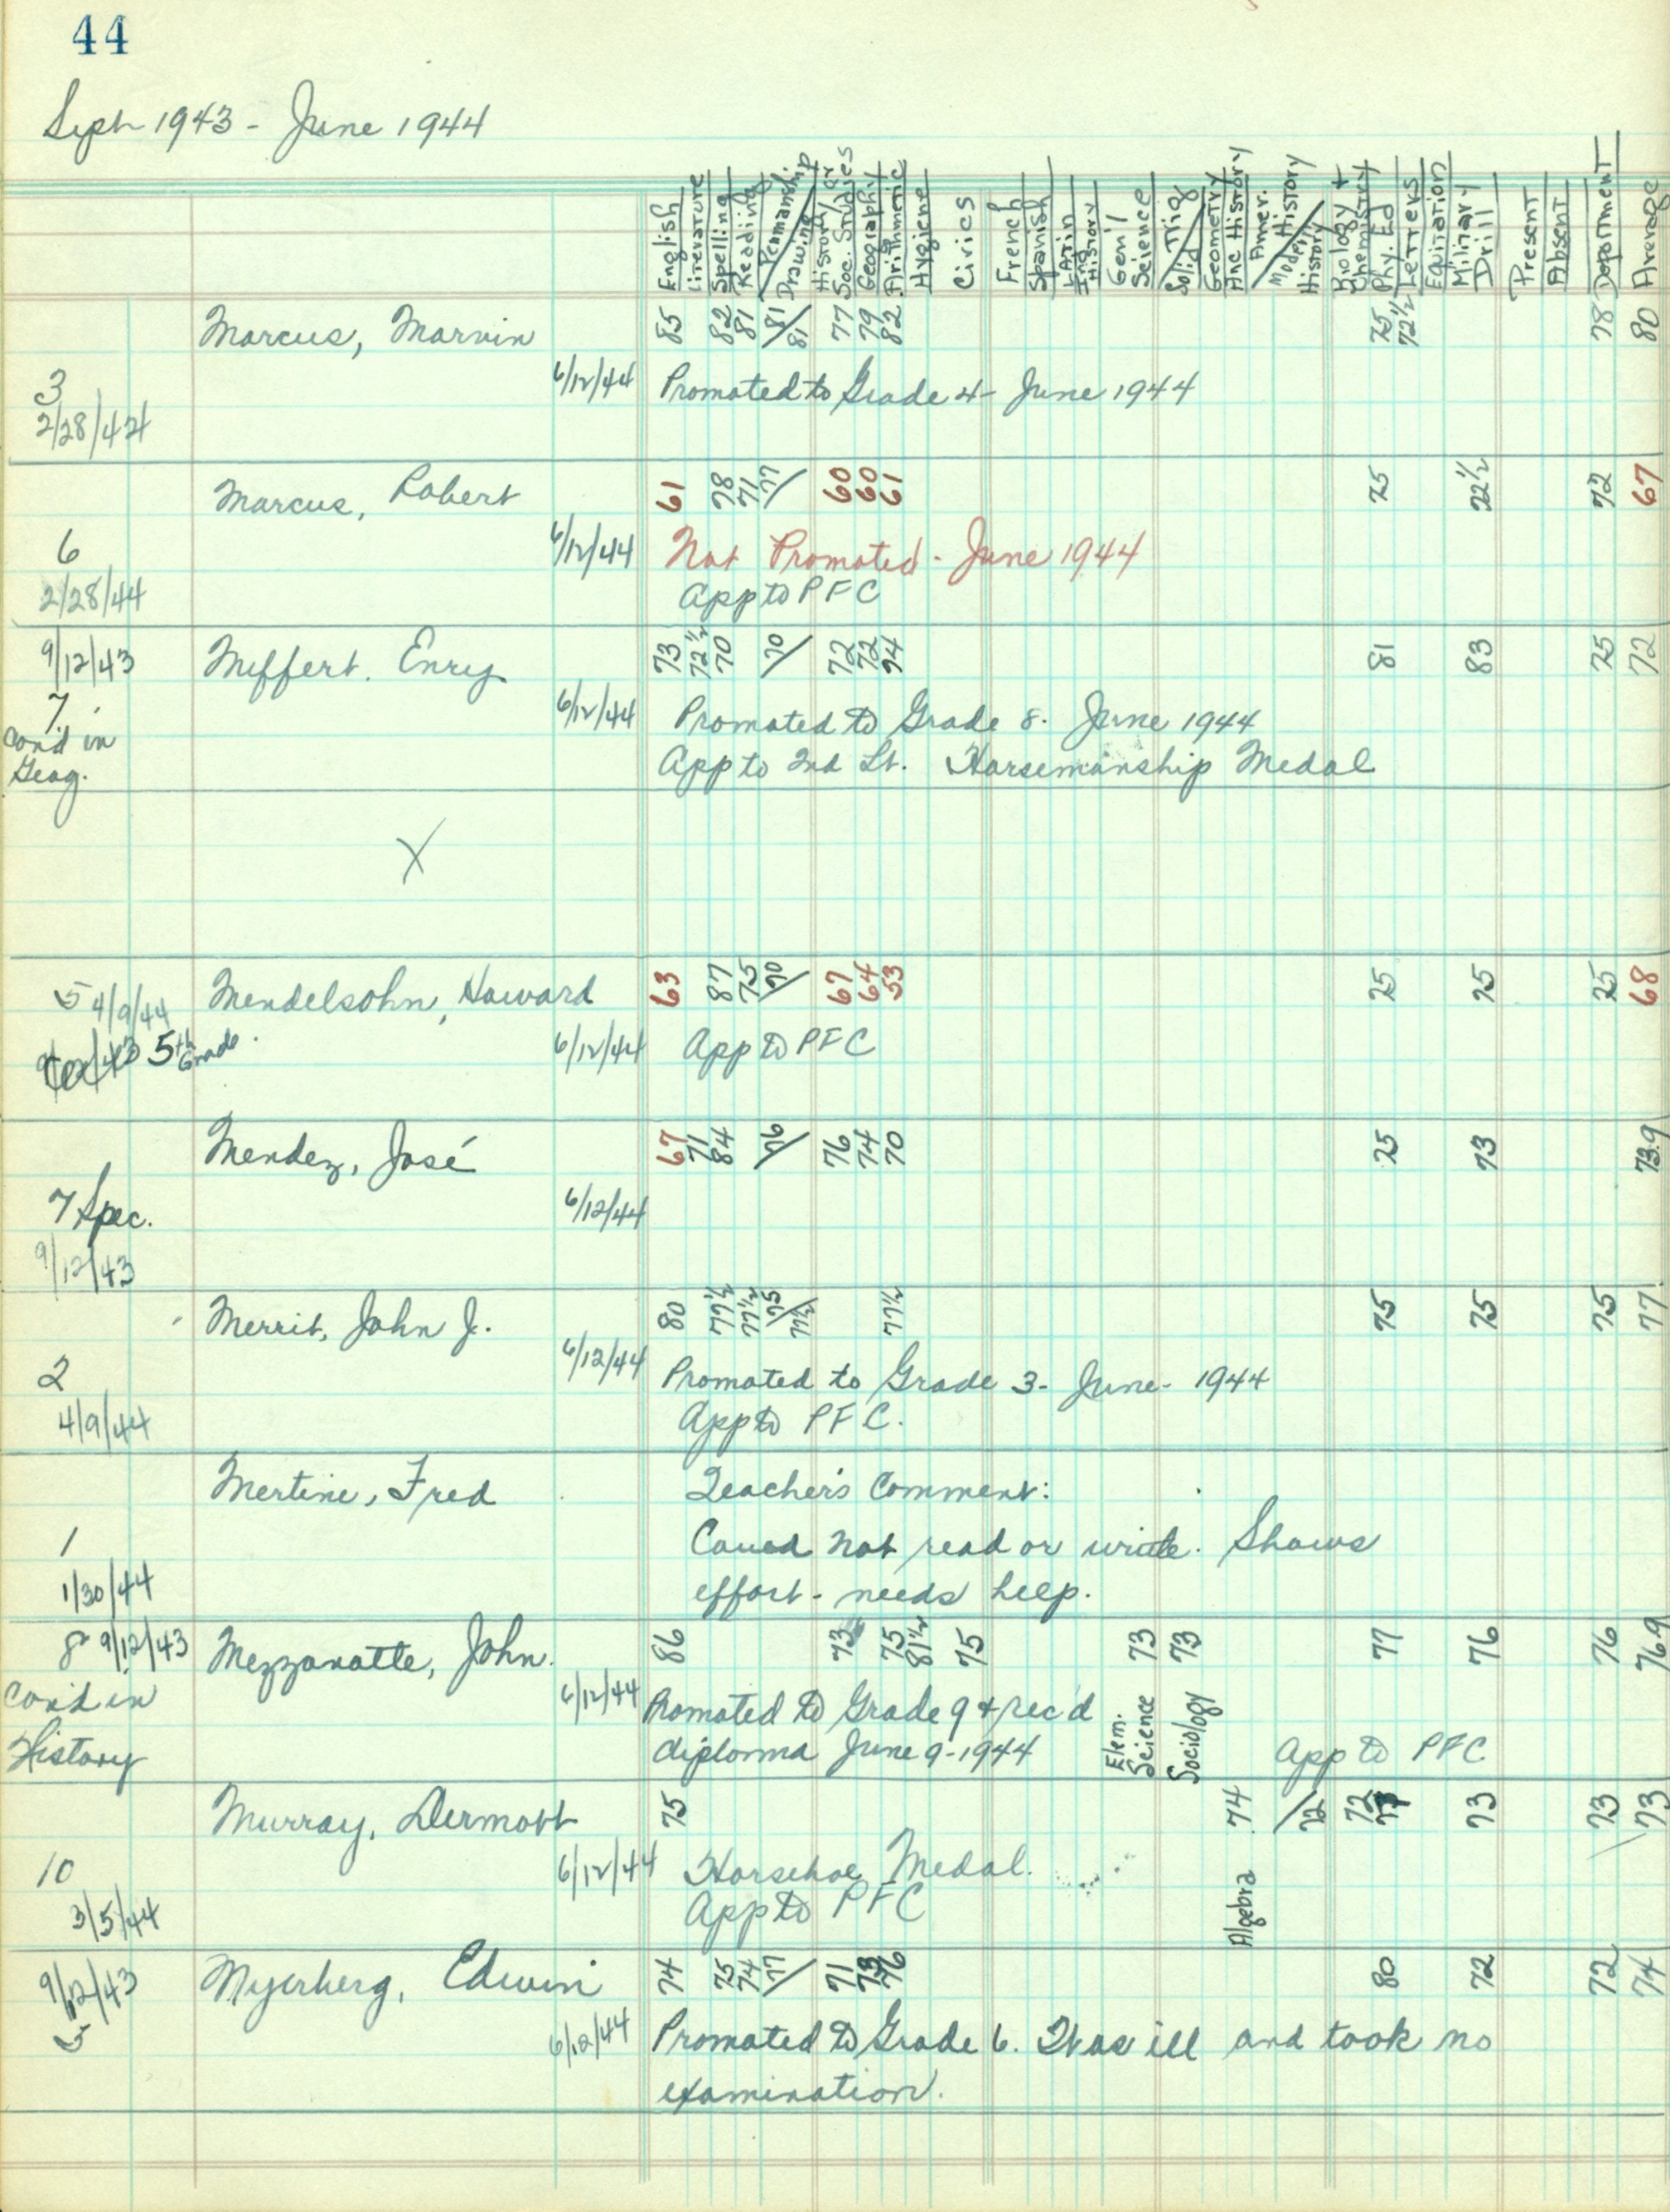 44
Sept 1943 - June 1944
English
Literature
Spelling
Reading
Penmanship
Drawing
History or
Soc. Studies
Geography
Arithmetic
Hygiene
Civics
French
Spanish
Latin
Eng History
Gen'l Science
Solid Trig
Geometry
Anc History
Amer. History
Modern History
Biology +
Chemistry
Phy. Ed
Letters
Equitation
Military Drill
Present
Absent
Department
Average
Marcus, Marvin 85 82 81 81/81 77 79 82 75 72½ 78 80
3 6/12/44 Promoted to Grade 4 - June 1944
2/28/44
Marcus, Robert 61 78 71 77/ 60 60 61 75 72½ 72 67
6 6/12/44 Not Promoted - June 1944
2/28/44 App to PFC
9/12/43 Meffert. Enry 73 72½ 70 70/ 72 72 74 81 83 75 72
7 6/12/44 Promoted to Grade 8. June 1944
Cond in App to 2nd Lt. Horsemanship Medal
Geog.
X
5 4/9/44 Mendelsohn, Howard 63 87 75 70/ 67 64 53 75 75 75 68
5th Grade 6/12/44 App to PFC
Mendez, José 67 71 84 76/ 76 74 70 75 73 73.9
7 Spec. 6/12/44
9/12/43
Merrit, John J. 80 77½ 77½ 75/77½ 77½ 75 75 75 77
2 6/12/44 Promoted to Grade 3 - June - 1944
4/9/44 App to PFC.
Mertine, Fred Teacher's Comment:
1 Could not read or write. Shows
1/30/44 effort - needs help.
8 9/12/43 Mezzanotte, John. 86 73 75 81½ 75 73 73 77 76 76 76.9
Cond in 6/12/44 Promoted to Grade 9 & rec'd Elem. Science Sociology
History diploma June 9-1944 App to PFC
Murray, Dermott 75 74 /72 72 73 73 73
10 6/12/44 Horseshoe Medal. Algebra
3/5/44 App to PFC
9/12/43 Myerberg, Edwin 74 75 74 77/ 71 73 76 80 72 72 74
5 6/12/44 Promoted to Grade 6. Was ill and took no
examination.